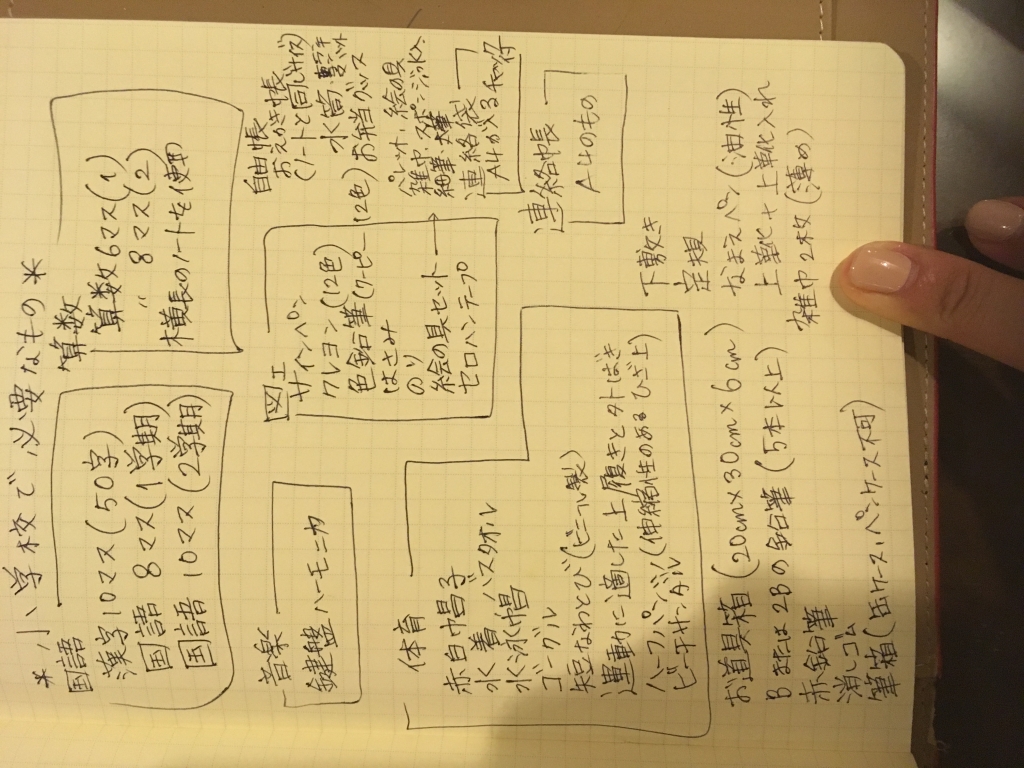 *小学校で必要なもの*
国語
漢字10マス(50字)
国語 8マス(1学期)
国語 10マス(2学期)
算数
算数6マス(1)
〃 8マス(2)
横長のノートを使用
音楽
鍵盤ハーモニカ
図工
サインペン
クレヨン(12色)
色鉛筆(クーピー12色)
はさみ
のり
絵の具セット→
セロハンテープ
パレット、絵の具
雑巾、スポンジ
細筆 太筆
自由帳
おえかき帳
(ノートと同じサイズ)
水筒
お弁当グッズ
連絡袋
A4が入るチャック付
連絡帳
A4のもの
体育
赤白帽子
水着 バスタオル
水泳帽
ゴーグル
短なわとび(ビニール製)
運動に適した上履きと外ばき
ハーフパンツ(伸縮性のあるひざ上)
ビーチサンダル
下敷き
定規
お道具箱(20cm×30cm×6cm)
Bまたは2Bの鉛筆(5本以上)
赤鉛筆
消しゴム
筆箱(缶ケース、ペンケース不可)
なまえペン(油性)
上靴+上靴入れ
雑巾2枚(薄め)